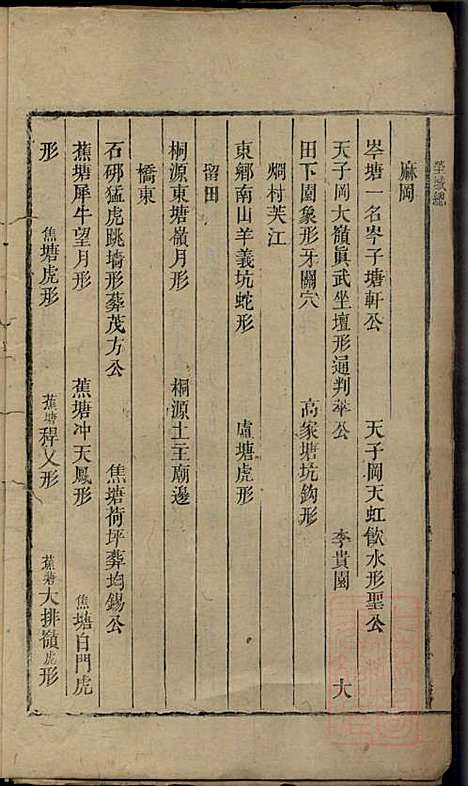 塋域總
麻岡
岑塘一名岑子塘軒公　天子岡天虹飲水形聖公
天子岡大嶺眞武坐壇形通判举公　李貴園　大
田下園象形牙關穴　高家塘坑鈎形
爓村芙江
東鄉南山羊義坑蛇形　盧塘虎形
留田
桐源東塘嶺月形　桐源土主廟邊
橋東
石硎猛虎跳墻形葬茂方公　焦塘荷坪葬均錫公
蕉塘犀牛望月形　蕉塘冲天鳳形　焦塘白門虎
形　焦塘虎形　蕉塘稈乂形　蕉塘大排嶺虎形